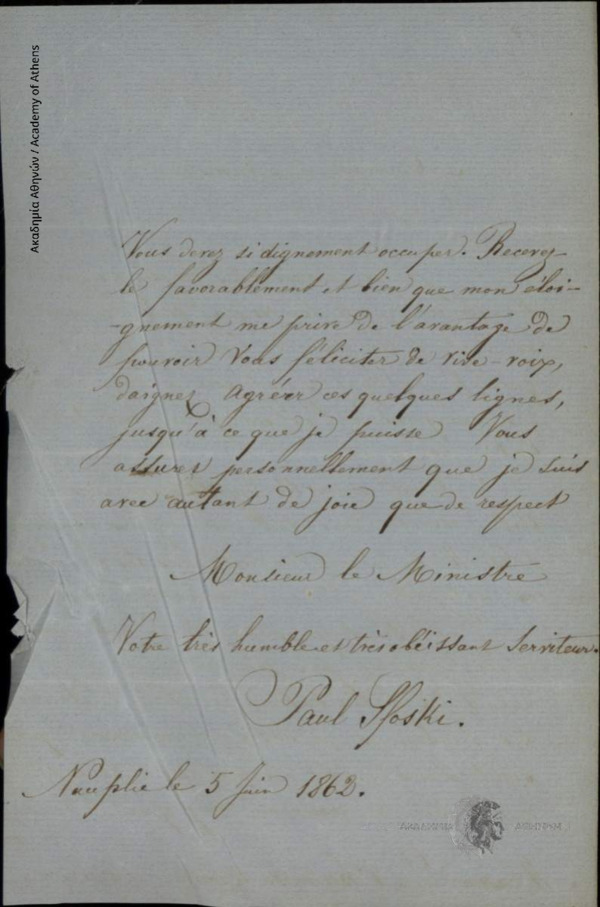 Ακαδημία Αθηνών / Academy of Athens
Vous devez si dignement occuper. Recevez-
le favorablement et bien que mon éloi-
-gnement me prive de l'avantage de
pouvoir Vous féliciter de vive-voix,
daignez agréer ces quelques lignes,
jusqu'à ce que je puisse Vous
assurer personnellement que je suis
avec autant de joie que de respect
Monsieur le Ministre
Votre très humble et très obéissant Serviteur.
Paul
Nauplie le 5 Juin 1862.
ΑΚΑΔΗΜΙΑ ΑΘΗΝΩΝ